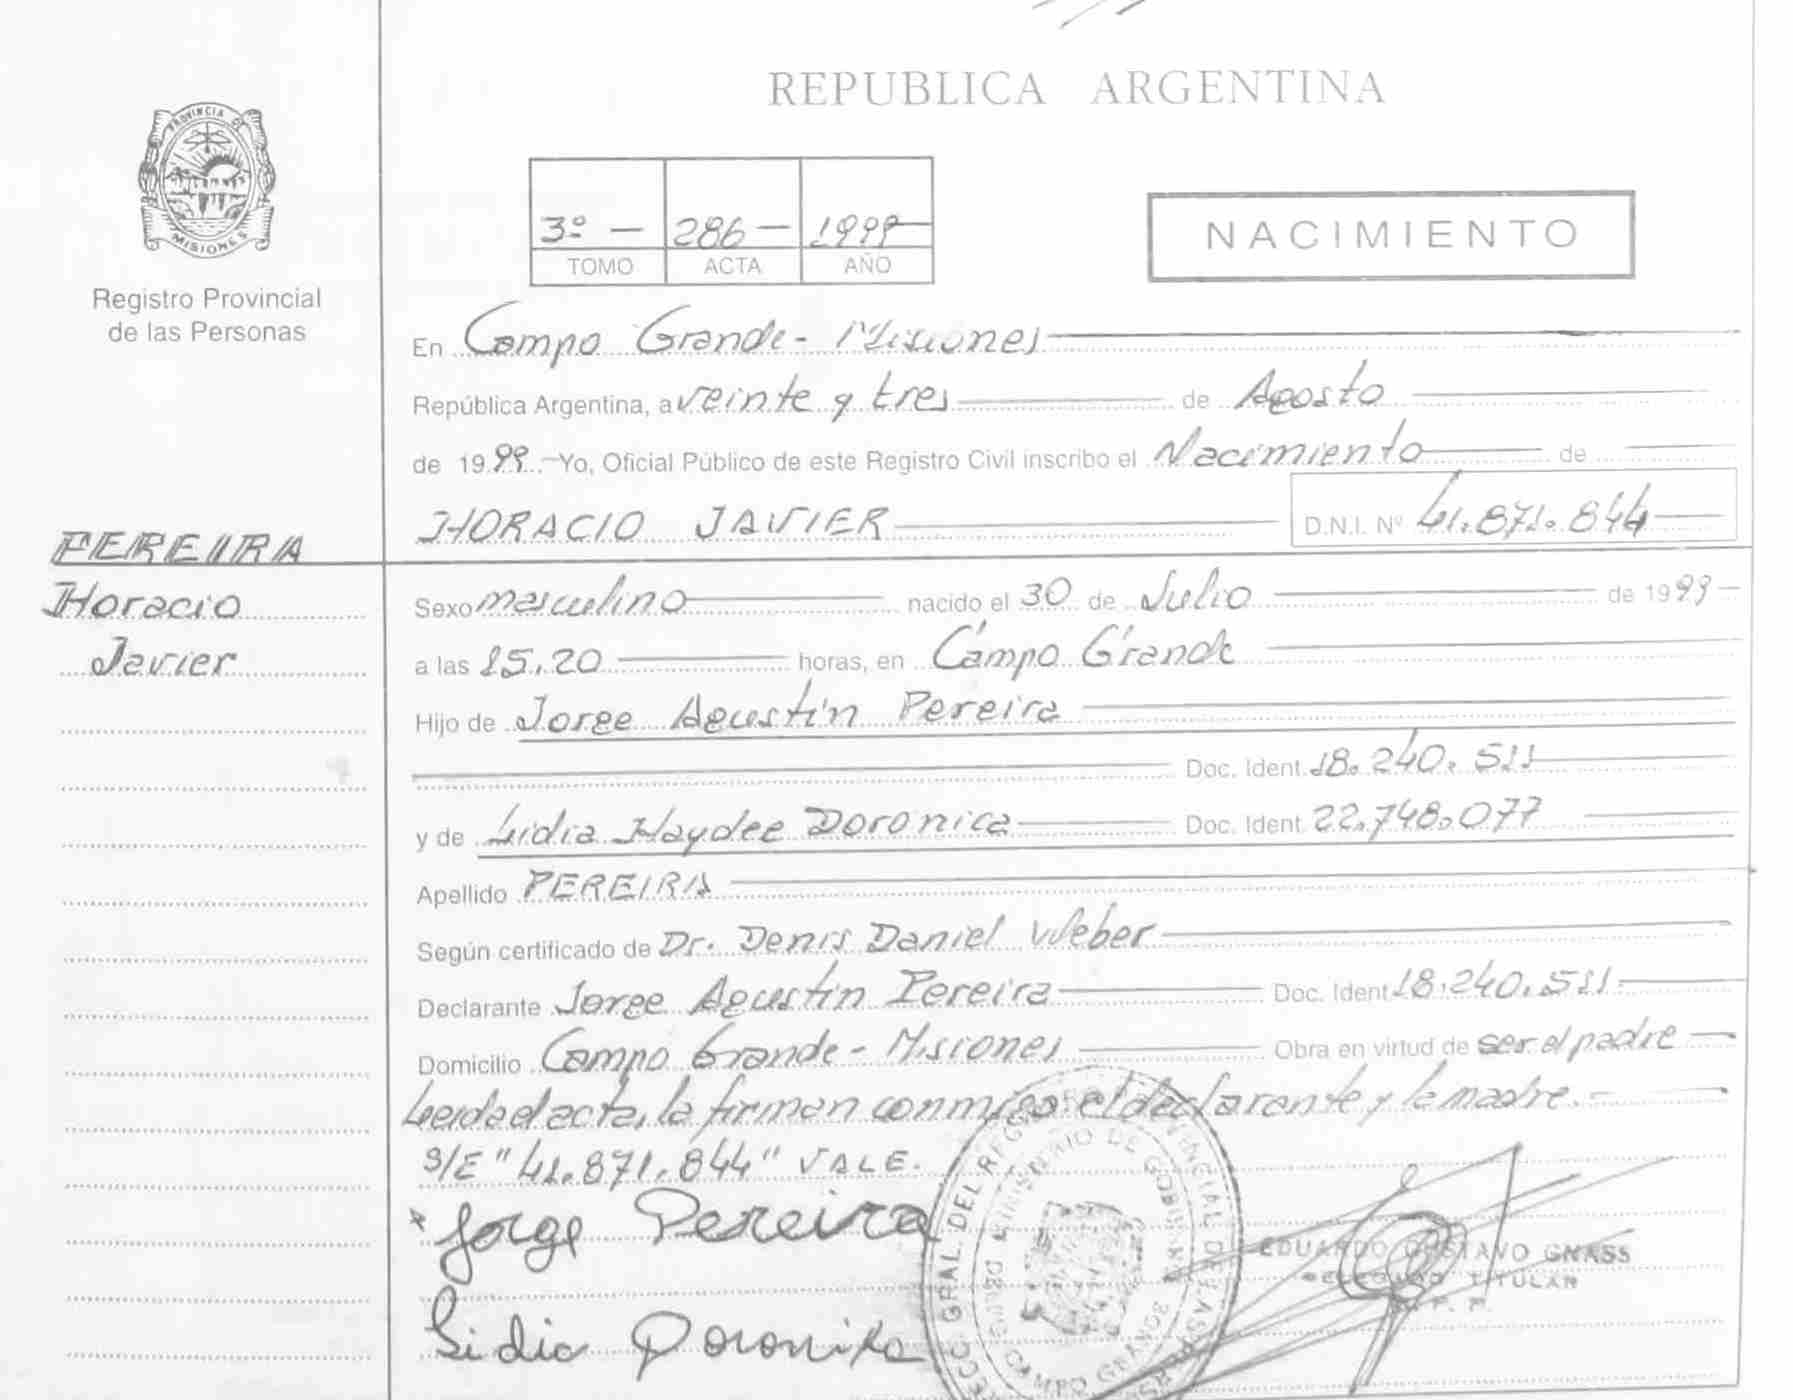 REPUBLICA ARGENTINA
PROVINCIA DE
MISIONES
Registro Provincial
de las Personas
3º - 286 - 1999
TOMO ACTA AÑO
NACIMIENTO
En Campo Grande - Misiones
República Argentina, a veinte y tres de Agosto
de 1999 - Yo, Oficial Público de este Registro Civil inscribo el Nacimiento de
HORACIO JAVIER D.N.I. Nº 41.871.844
PEREIRA
Horacio
Javier
Sexo masculino nacido el 30 de Julio de 1999
a las 15.20 horas, en Campo Grande
Hijo de Jorge Agustín Pereira
Doc. Ident. 18.240.511
y de Lidia Haydee Doronica Doc. Ident. 22.748.077
Apellido PEREIRA
Según certificado de Dr. Denis Daniel Weber
Declarante Jorge Agustín Pereira Doc. Ident. 18.240.511
Domicilio Campo Grande - Misiones Obra en virtud de ser el padre
Leida el acta, la firman conmigo el declarante y la madre.-
S/E "41.871.844" VALE.
Jorge Pereira
EDUARDO GUSTAVO GNASS
DELEGADO TITULAR
Lidia Doronika
CAMPO GRANDE